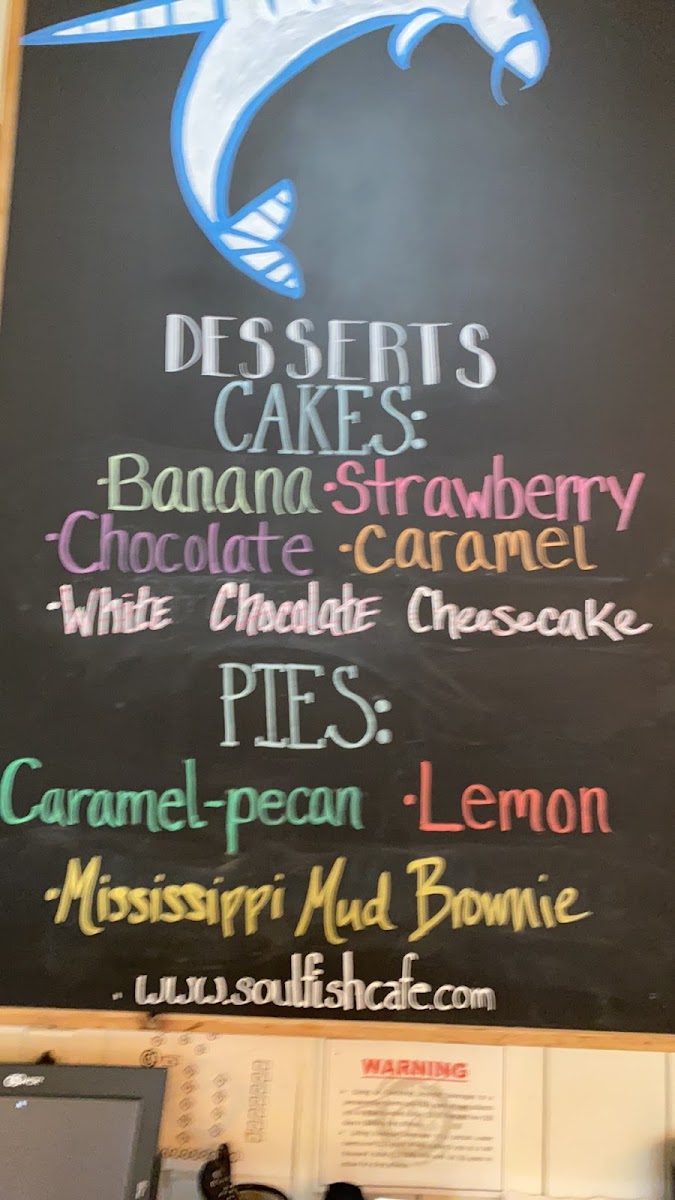 DESSERTS
CAKES:
·Banana ·Strawberry
·Chocolate ·Caramel
·White Chocolate Cheesecake
PIES:
Caramel-pecan ·Lemon
·Mississippi Mud Brownie
www.soulfishcafe.com
WARNING